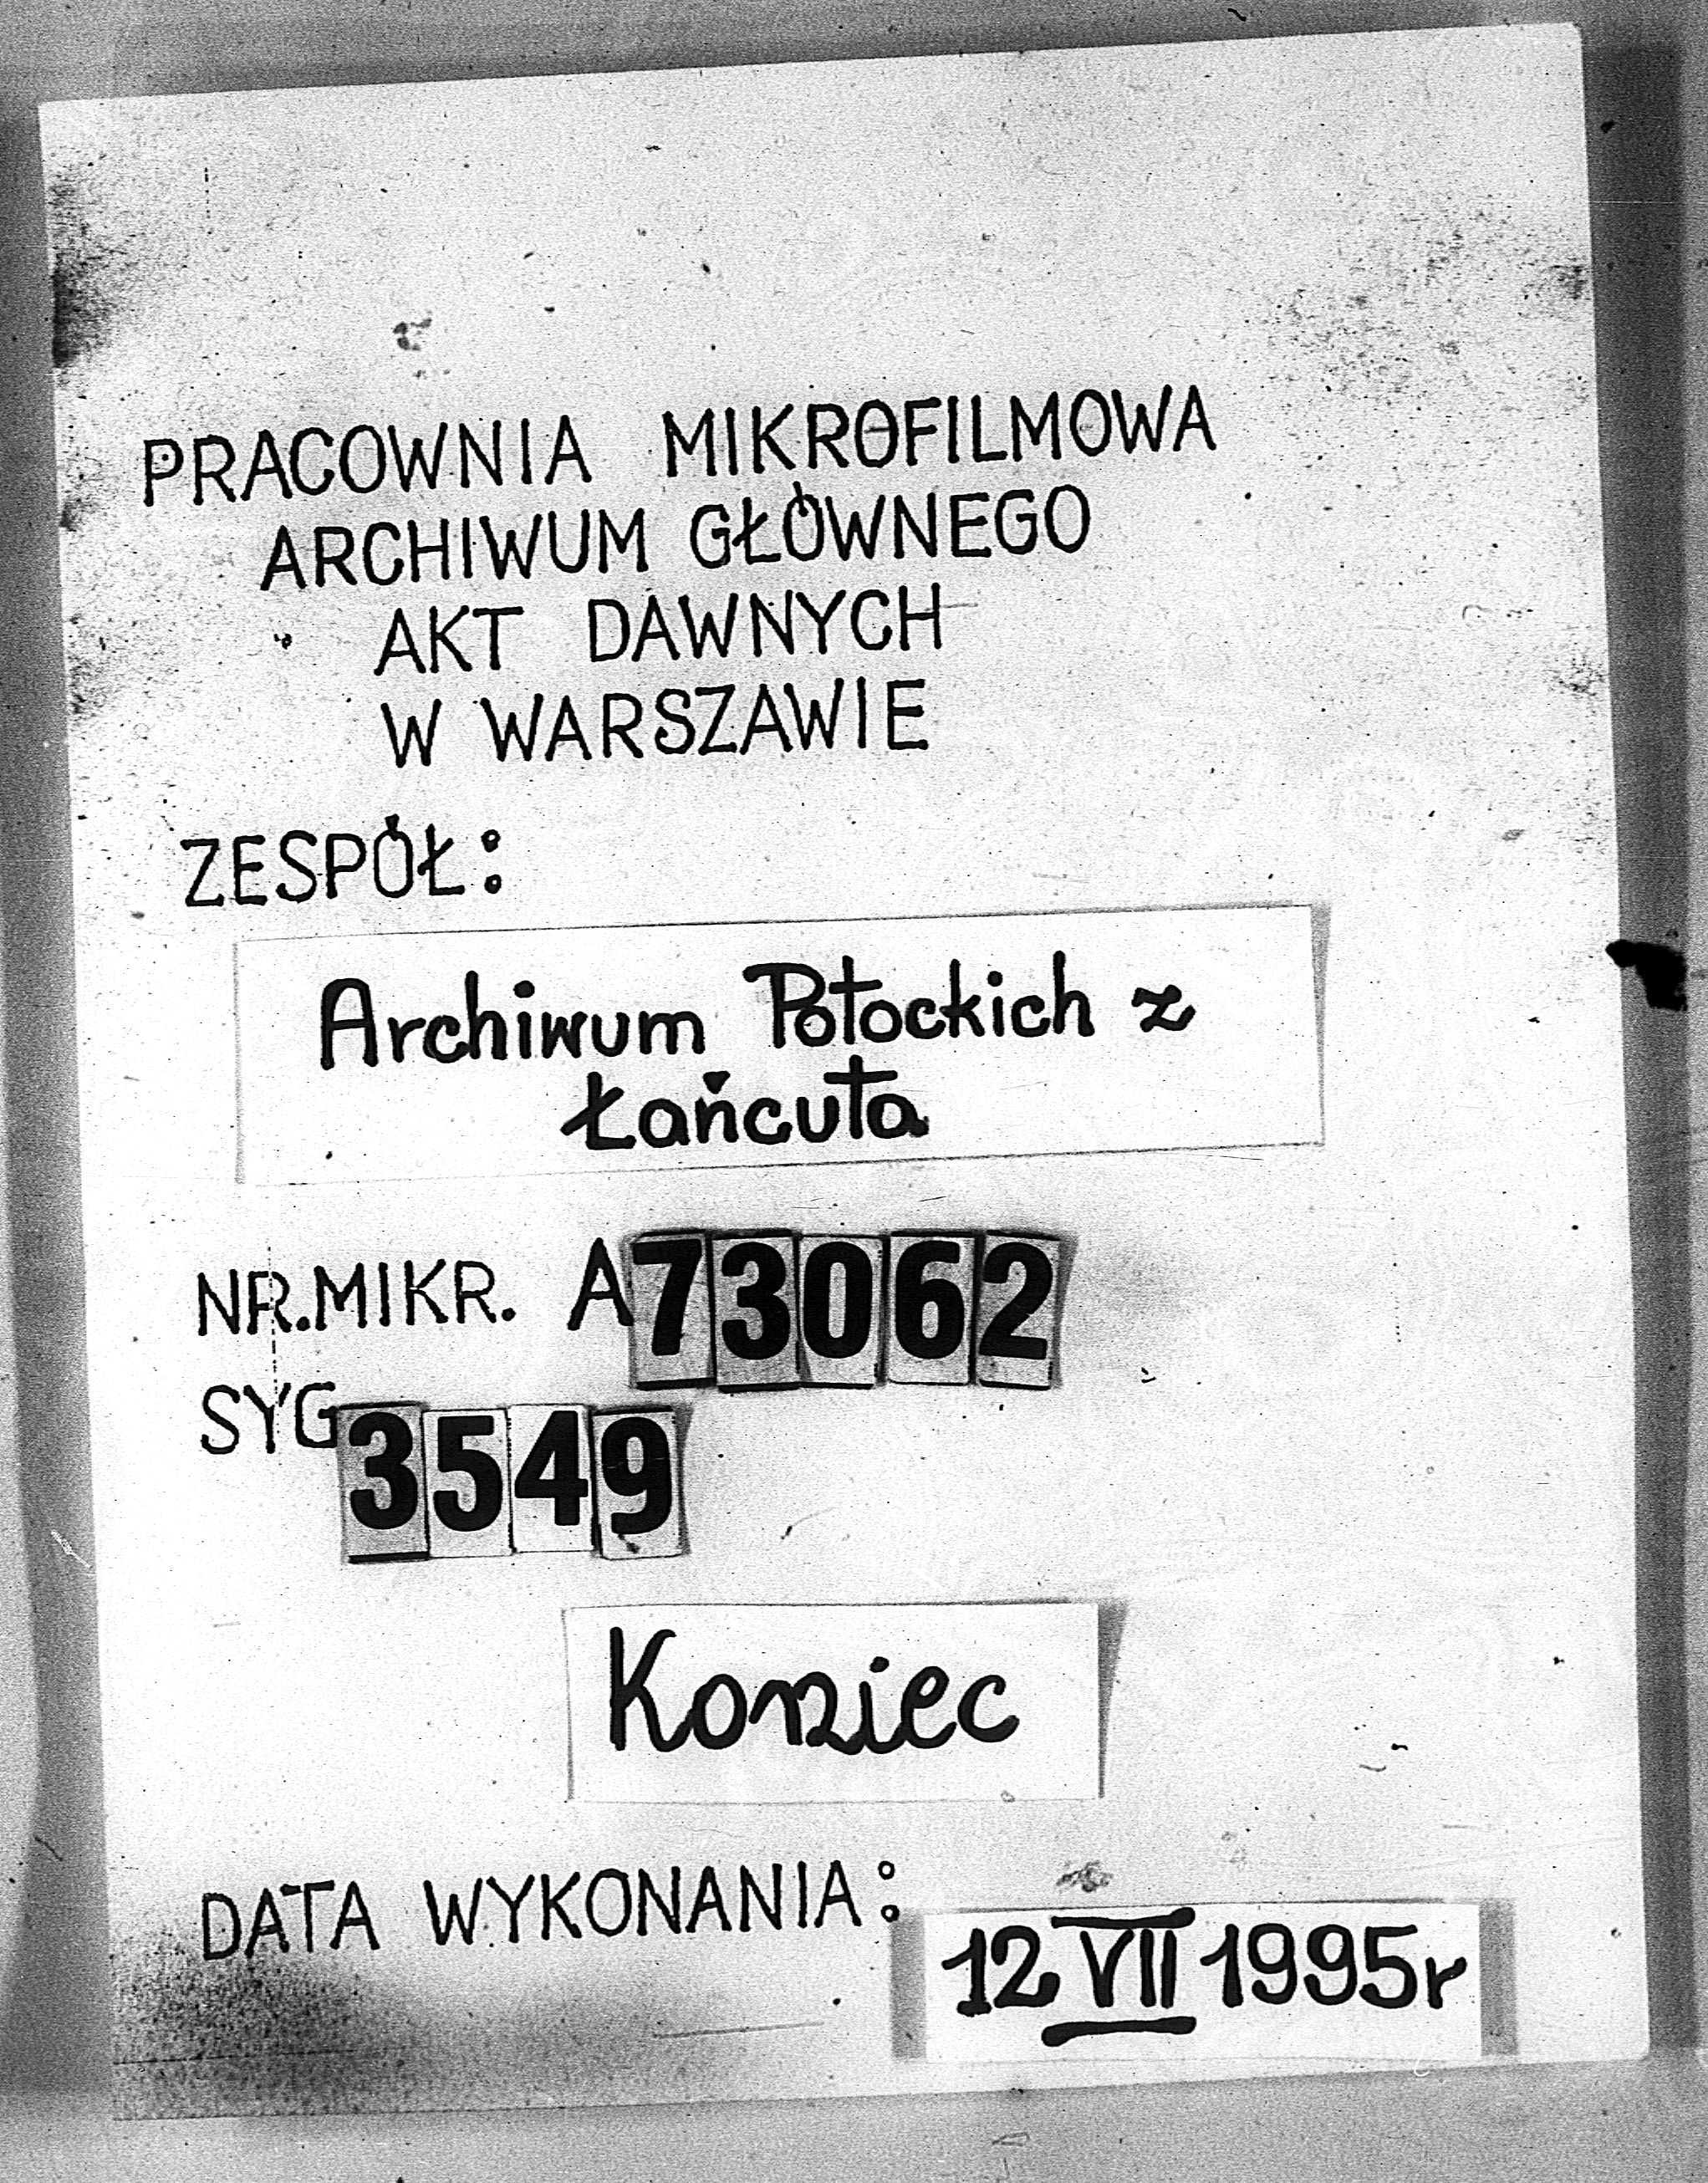 PRACOWNIA MIKROFILMOWA
ARCHIWUM GŁÓWNEGO
AKT DAWNYCH
W WARSZAWIE
ZESPÓŁ:
Archiwum Potockich z
Łańcuta
NR. MIKR. A73062
SYG 3549
Koniec
DATA WYKONANIA:
12 VII 1995r